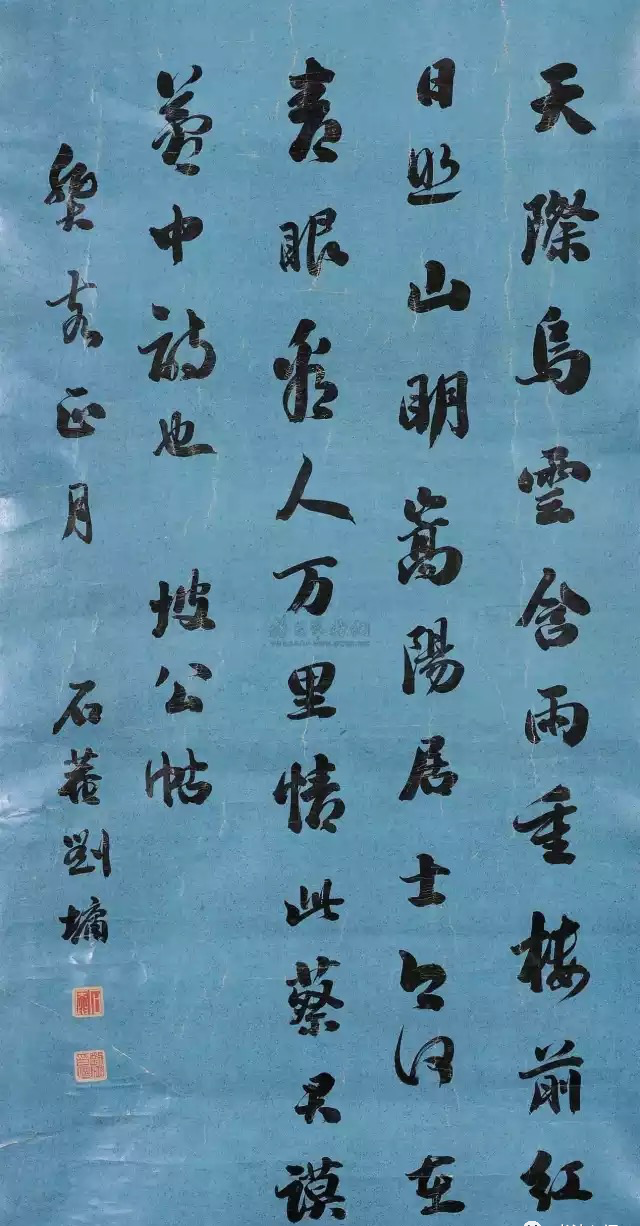 天際烏雲含雨重樓前紅
日照山明嵩陽居士今何在
青眼看人万里情此蔡君謨
夢中詩也 坡公帖
正月 石菴劉墉